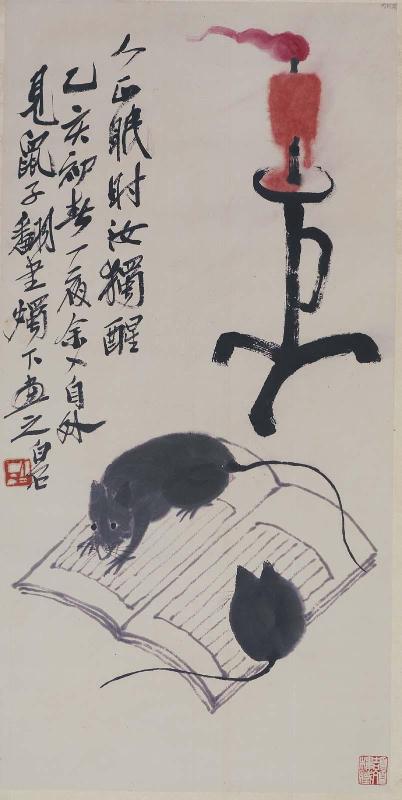 人正眠時汝獨醒
乙亥初春一夜余入自外
見鼠子翻書燭下畫之白石